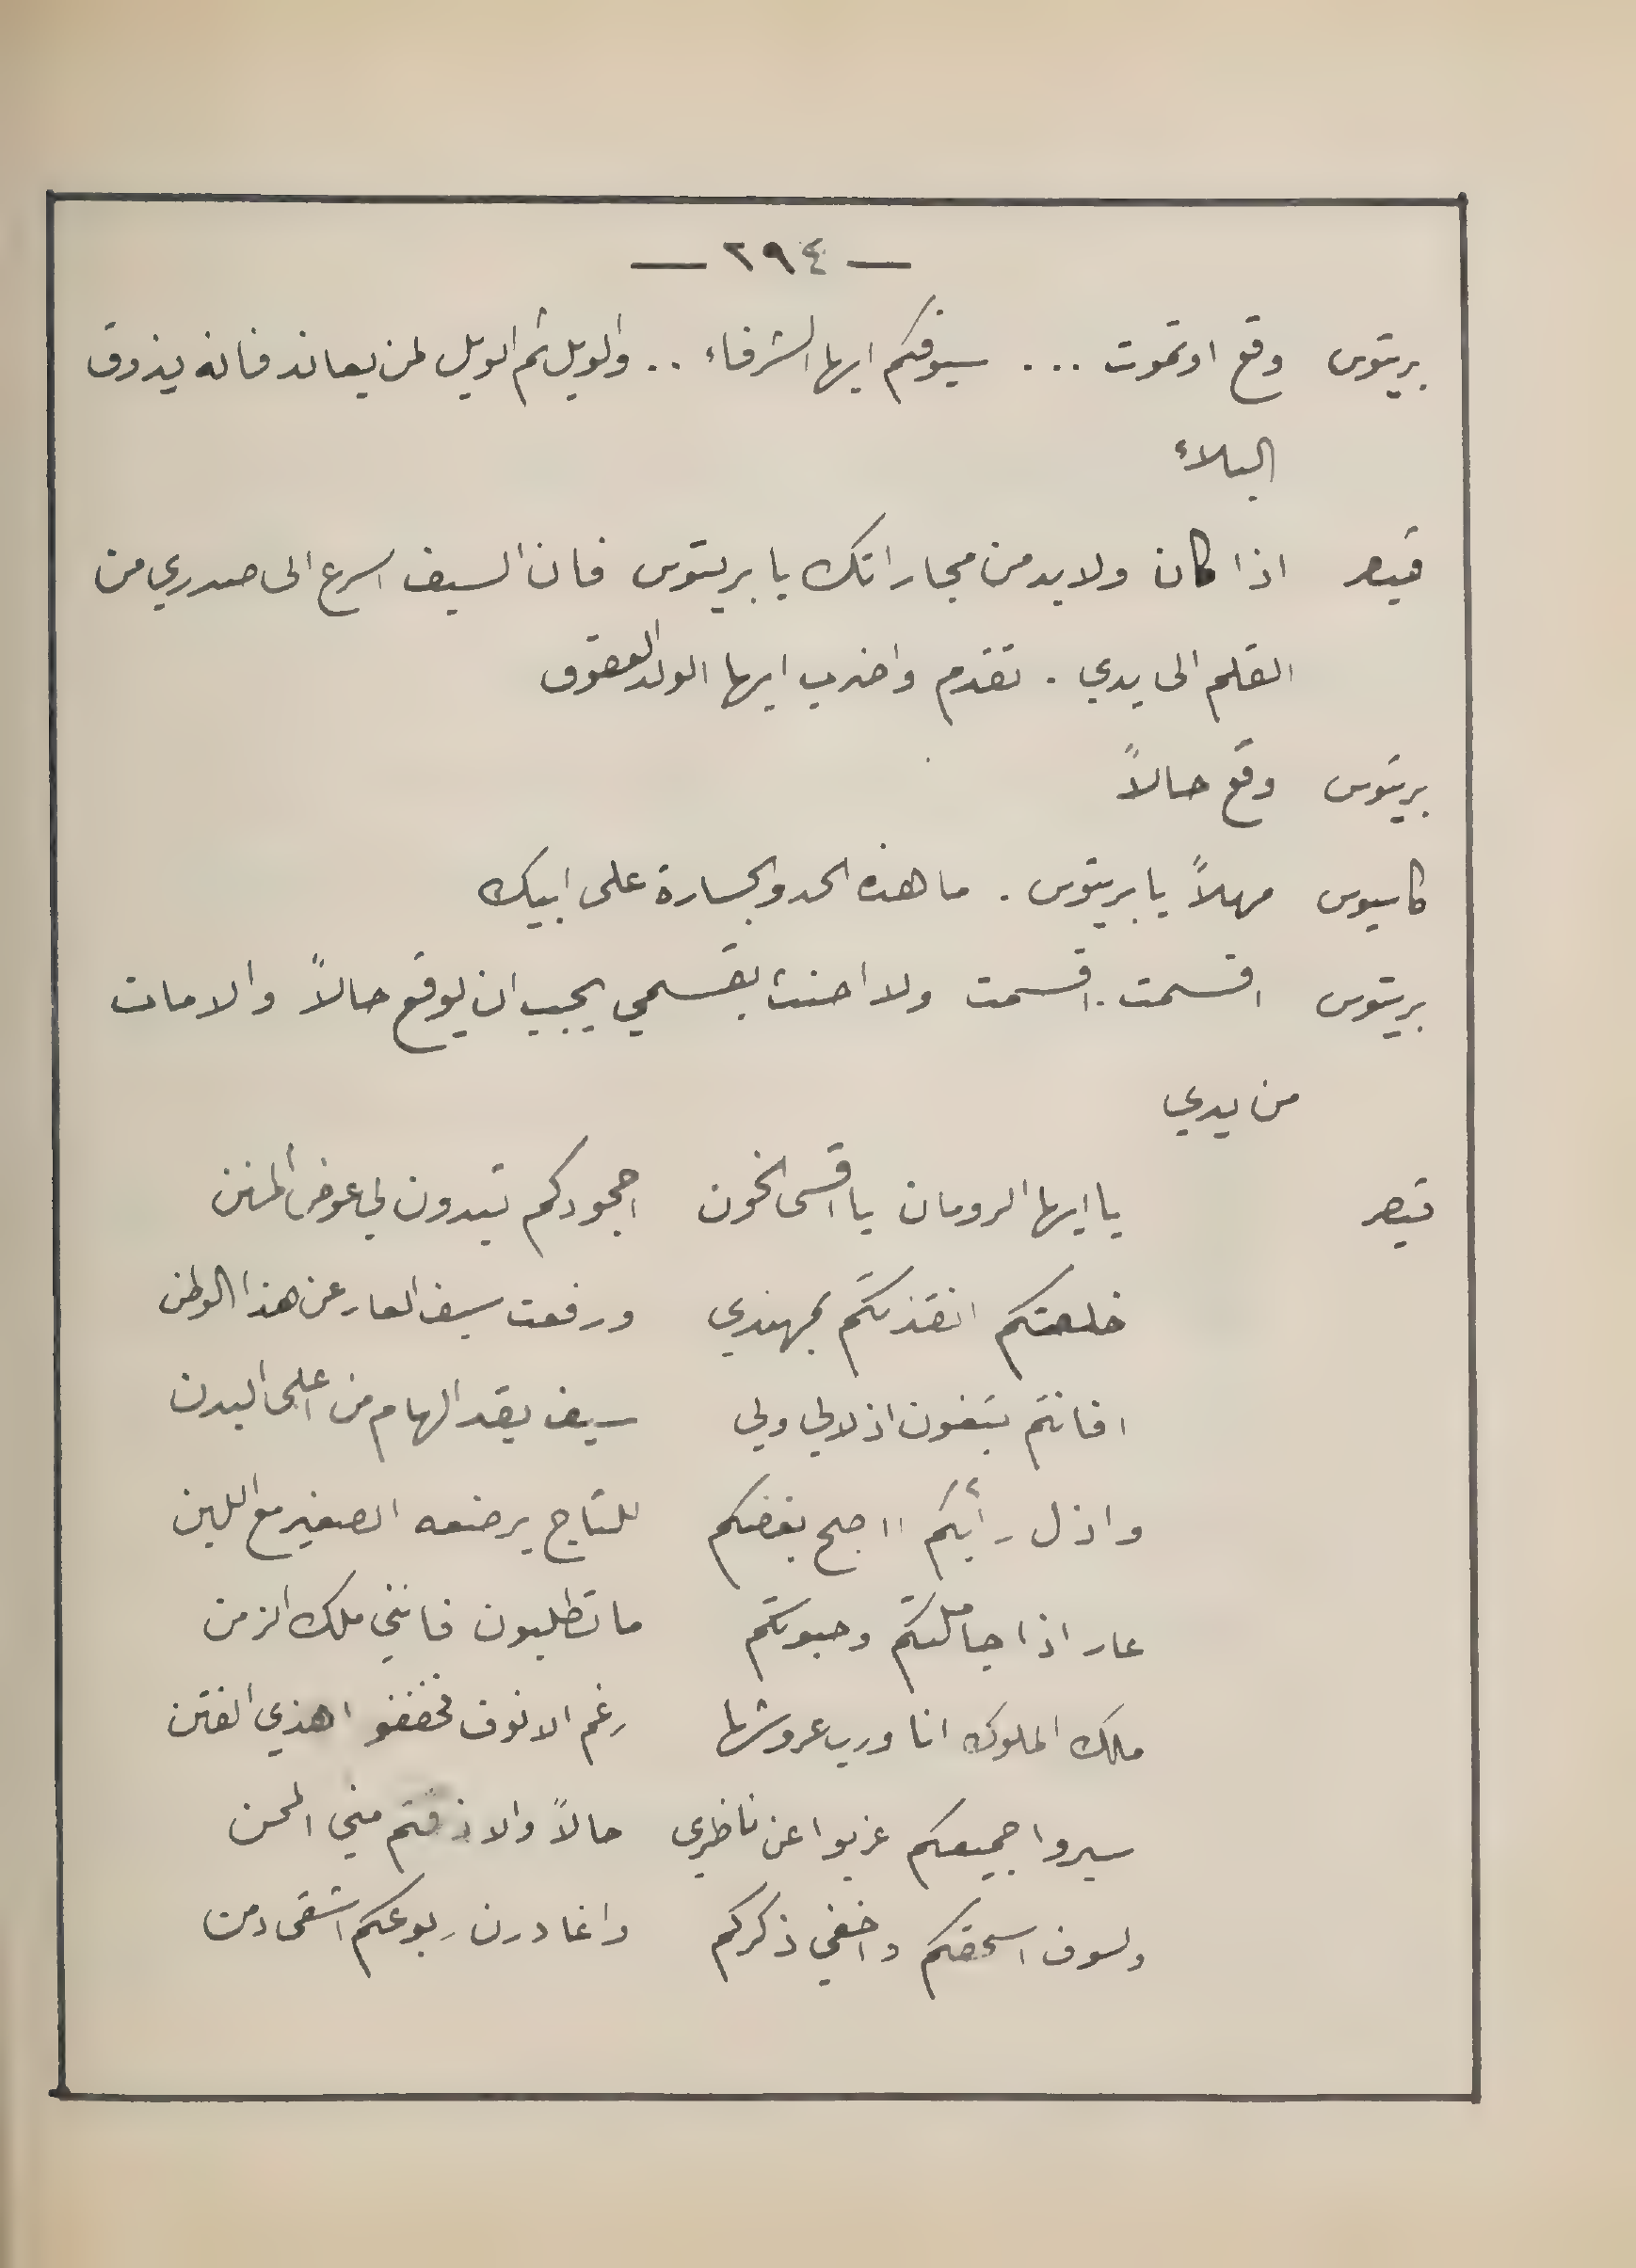 — ٢٩٤ —
بريتوس وقع او تموت ... سيوفكم ايها الشرفاء .. والويل ثم الويل لمن يعاند فانه يذوق
البلاء
قيصر اذا كان ولا بد من مجاراتك يا بريتوس فان السيف اسرع الى صدري من
القلم الى يدي . تقدم واضرب ايها الولد العقوق
بريتوس وقع حالاً
كاسيوس مهلاً يا بريتوس . ما هذه الحد والجسارة على ابيك
بريتوس اقسمت . اقسمت ولا احنث بقسمي يجب ان يوقع حالاً والا مات
من يدي
قيصر يا ايها الرومان يا اقسى الخون اجحودكم تبدون لي عوض المنن
خلصتكم انقذتكم بمهندي ورفعت سيف العار عن هذا الوطن
افانتم تبغون اذلالي ولي سيف يقد الهام من اعلى البدن
واذل رأيكم اصبح بغضكم للتاج يرضعه الصغير مع اللبن
عار اذا جاملتكم وحبوتكم ما تطلبون فانني ملك الزمن
ملك الملوك انا ورب عروشها رغم الانوف فخففوا هذي الفتن
سيروا جميعكم غربوا عن ناظري حالاً والا ذقتم مني المحن
ولسوف اسحقكم واخفي ذكركم واغادرن ربوعكم اشقى دمن